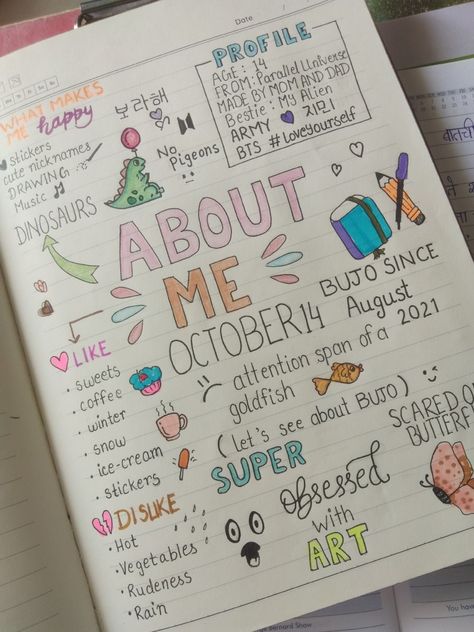 Date
WHAT MAKES
ME happy
stickers
cute nicknames
DRAWING
Music
DINOSAURS
보라해
No
Pigeons
PROFILE
AGE : 14
FROM: Parallel Universe
MADE BY MOM AND DAD
Bestie : My Alien
ARMY 지민
BTS #Loveyourself
ABOUT
ME
OCTOBER 14
BUJO SINCE
August
2021
LIKE
• sweets
• coffee
• winter
• snow
• ice-cream
• stickers
attention span of a
goldfish
(let's see about BUJO)
SCARED OF
BUTTERF
SUPER
obsessed
with
ART
DISLIKE
• Hot
• Vegetables
• Rudeness
• Rain
Bernard Shaw
You have